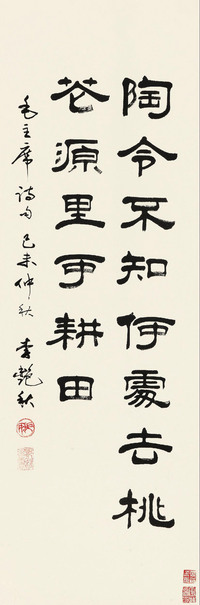 陶令不知何處去桃
花源里可耕田
毛主席诗句 己未仲秋 李艷秋